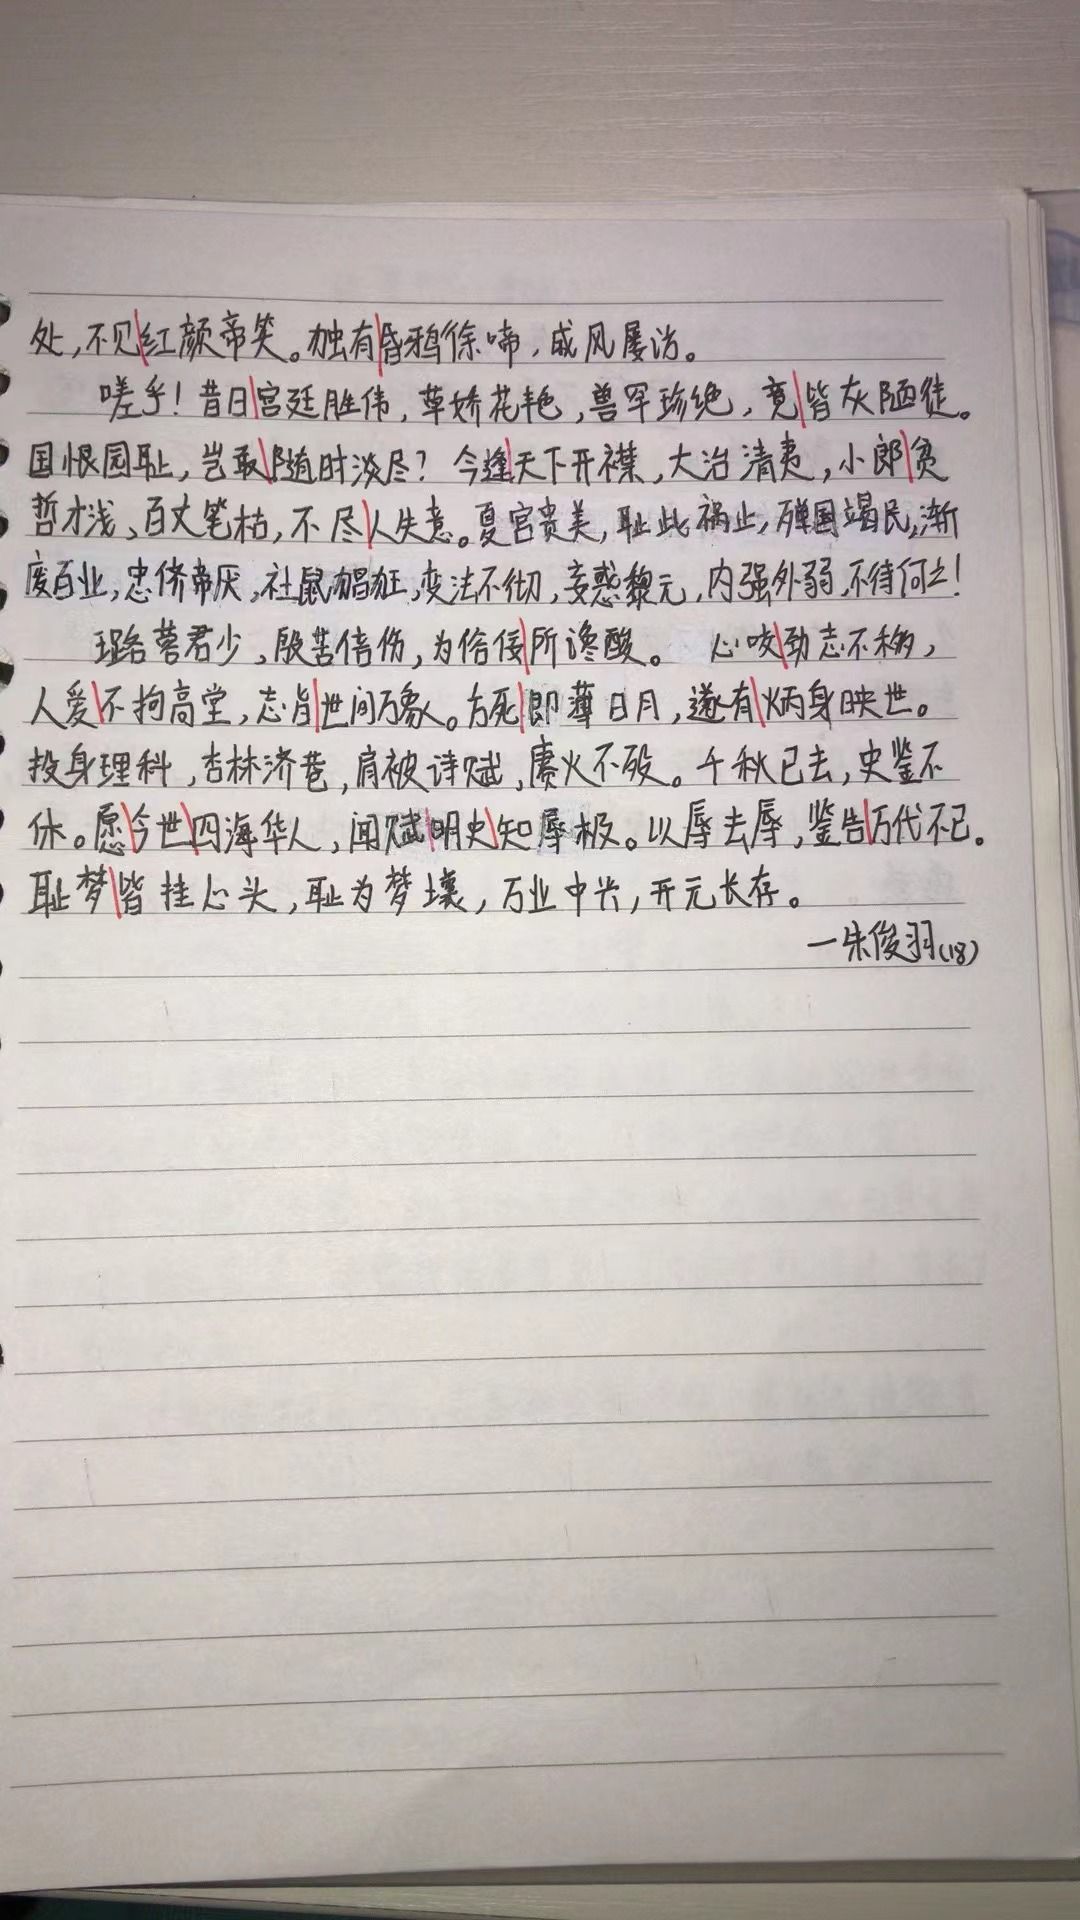 处，不见红颜帝笑。独有昏鸦徐啼，戚风屡访。
嗟乎！昔日宫廷胜伟，草娇花艳，兽罕珍绝，竟皆灰陋徒。
国恨园耻，岂敢随时淡尽？今逢天下开襟，大治清夷，小郎贫
哲才浅，百丈笔枯，不尽人失意。夏宫贵美，耻此祸止，殚国竭民，渐
废百业，忠侪帝厌，社鼠猖狂，变法不彻，妄惑黎元，内强外弱，不待何之！
璐营君少，殷苦倍伤，为侩佞所谗酸。 心咬劲志不移，
人爱不拘高堂，志皆世间万象。方死即薄日月，遂有炳身映世。
投身理科，杏林济苍，肩被诗赋，赓火不殁。千秋已去，史鉴不
休。愿今世四海华人，闻赋明史知辱极。以辱去辱，鉴告万代不已。
耻梦皆挂心头，耻为梦壤，万业中兴，开元长存。
一朱俊羽(18)